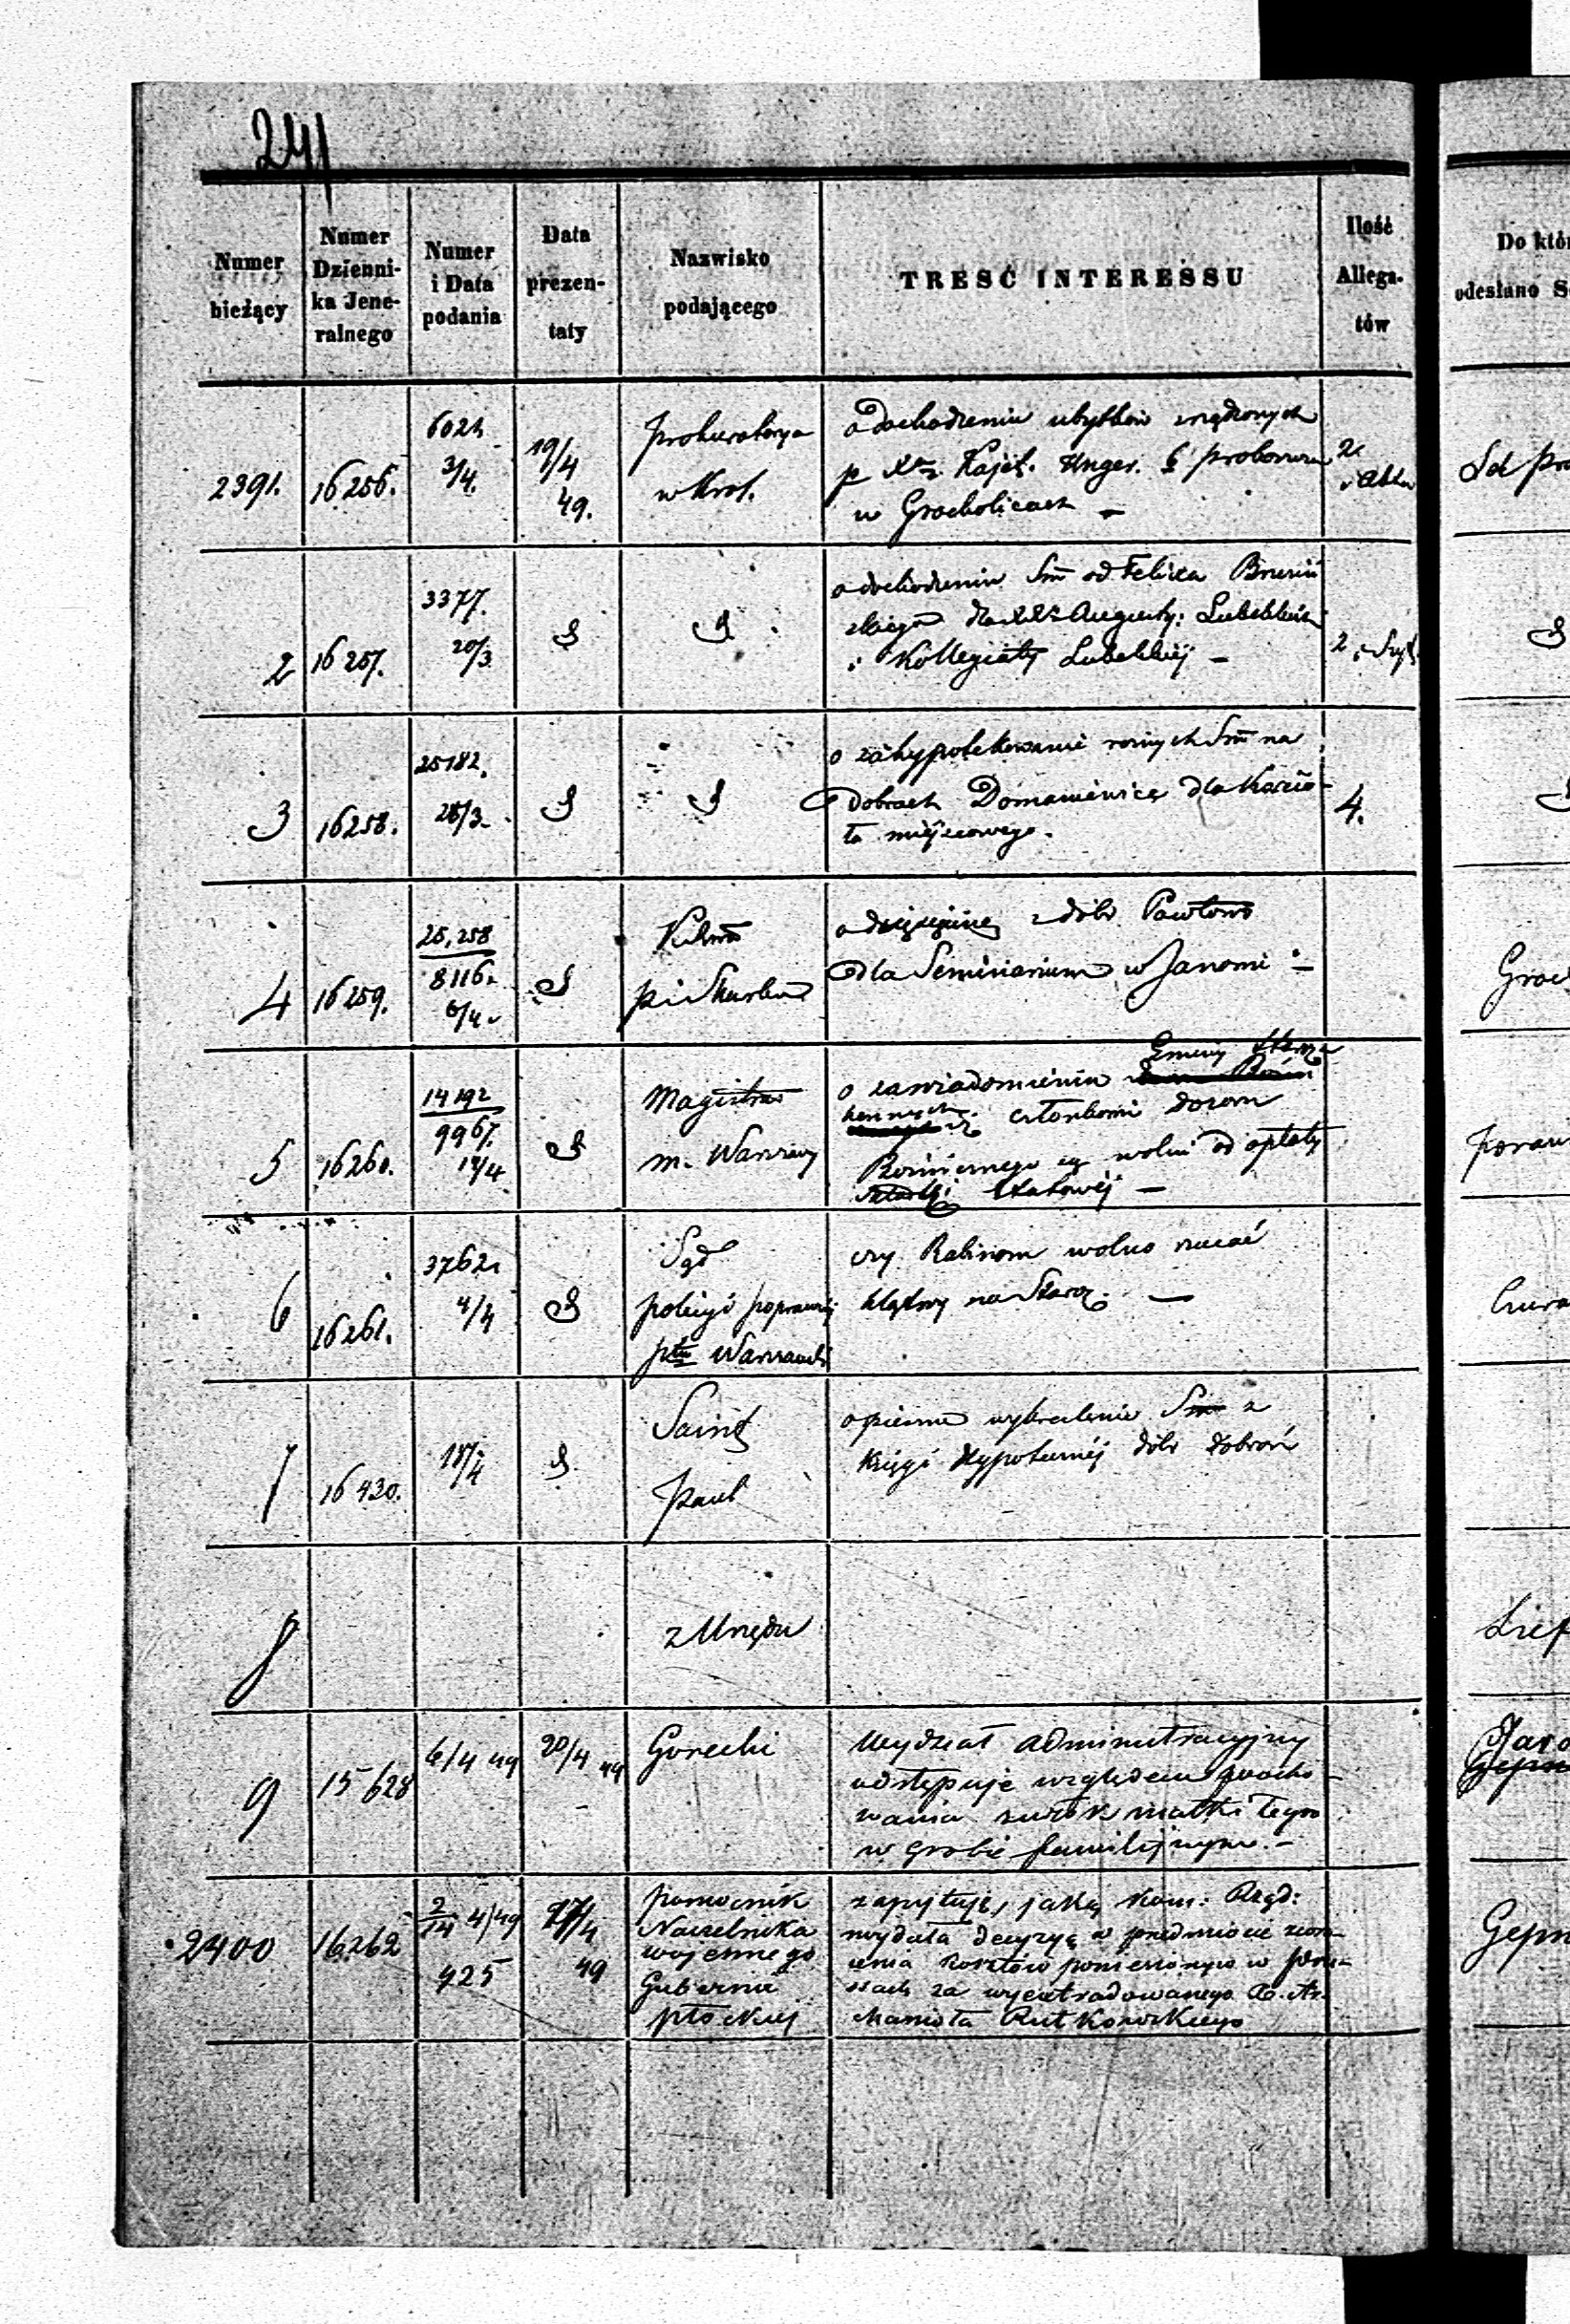 241
Numer bieżący
Numer Dzienni-
ka Jene-
ralnego
Numer i Data podania
Data prezen-
taty
Nazwisko podającego
TREŚĆ INTERESSU
Ilość Allega-
tów
Do któr
odesłano S
2391. 16256. 6024 3/4. 19/4 49.
Prokuratorya
w Krol.
o dochodzeniu ubytków zrządzonych
p Xa. Kajet. Unger. b proboszcza
w Grocholicach –
2
2 16257. 3377. 20/3
o dochodzeniu Sm od Felixa
dla XX Augusty: Lubelskich
i Kollegiaty Lubelskiej –
2
3 16258. 25182. 28/3
o zahypotekowanie roznych Sm na
dobrach Domaniewice dla Kościo-
ła miejscowego.
4.
4 16259. 25,258 8116 6/4
p i Skarbu
o dziesięcinę z dóbr Pawłowo
dla Seminarium w Janowi –
Groc
5 16260. 14192 9967. 14/4
Magistrat
m. Warszawy
Gminy Starz
o zawiadomieniu
członkowie dozoru
Bożniczego są wolni od opłaty
składki –
6 16261. 3762 4/4
Sąd
policyi poprawczej
ptu Warszawsk
czy Rabinom wolno rzucać
klątwy na Staroz. –
7 16430. 18/4
Saint
Paul
o pismo wykreślenie Sm z
księgi Hypotecznej dóbr Dobroń
8
z Urzędu
9 15628 6/4 49 20/4 49
Gorecki
Wydział administracyjny
odstępuje względem pocho-
wania zwłok matki tegoż
w grobie familijnym. –
2400 16262 2/14 4/49 425 27/4 49
pomocnik
Naczelnika
wojennego
Gubernii
płockiej
zapytuje, jaką Kom: Rząd:
wydała decyzyą w przedmiocie zwró-
cenia kosztów poniesionych w Prus-
sach za wyextradowanego
Rutkowskiego
Gepn